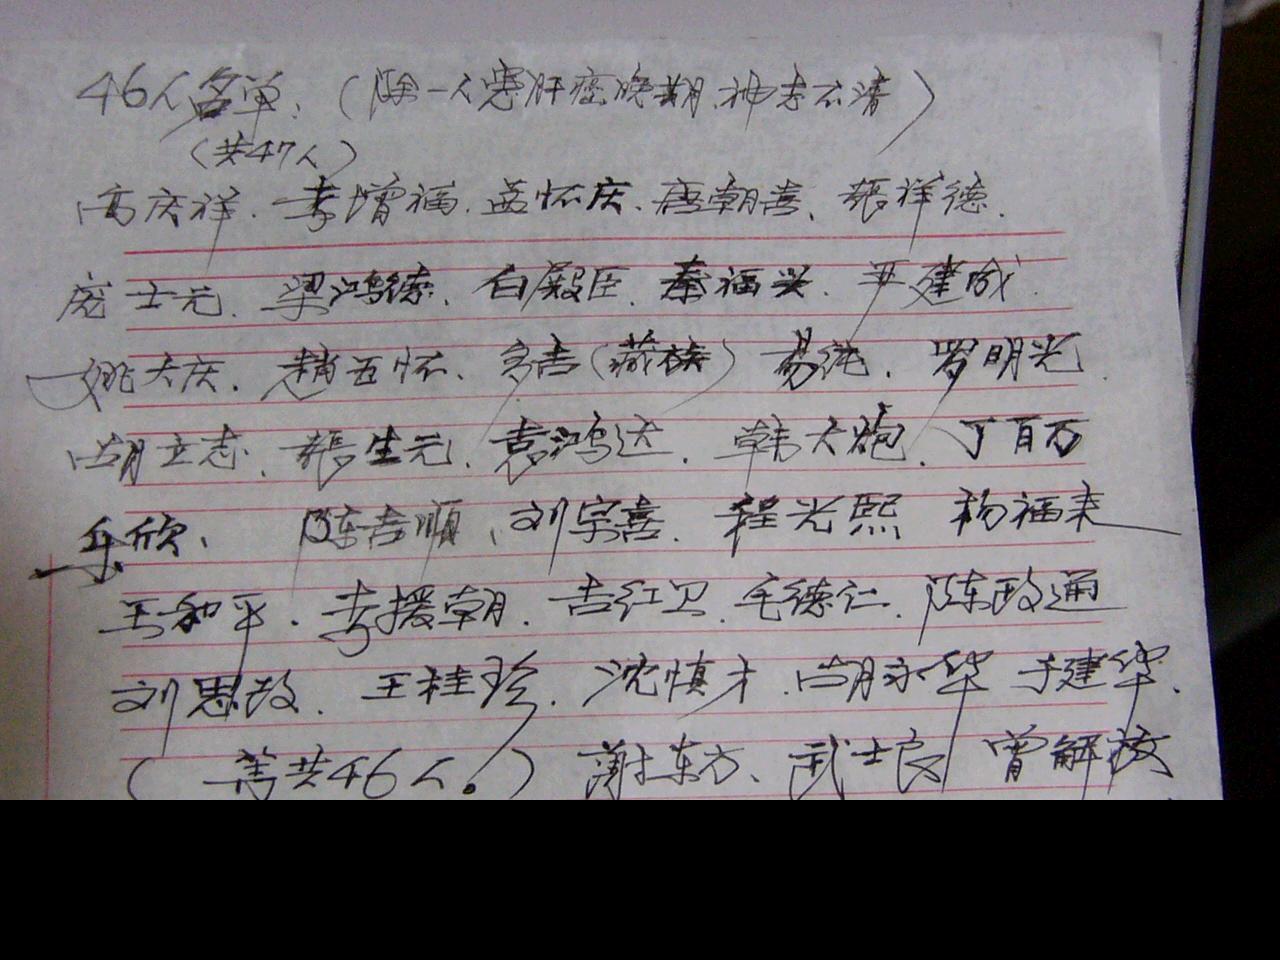 46人名单:(除一人患肝癌晚期.神志不清)
(共47人)
高庆祥.李增福.孟怀庆.唐朝喜、張祥德.
庞士元.梁鸿德.白殿臣.秦福兴.严建成.
姚大庆.趙五怀、多吉(藏族)易纯.罗明光.
胡立志.張生元.袁鸿达.韩大炮.丁百万
乐欣、陈吉順、刘宗喜.程光熙 杨福来
王和平.李援朝.吉红卫.毛德仁.陈政通
刘思政.王桂珍.沈慎才.胡永华 于建华.
(等共46人。)謝东方、武士良 曾解放